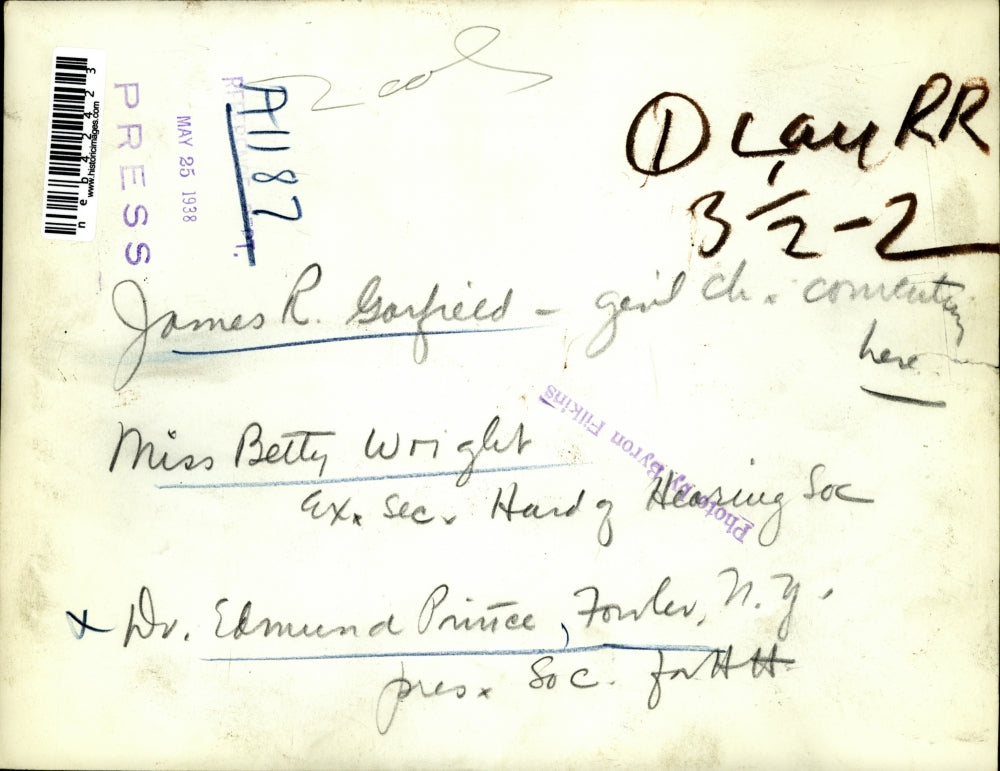 2 col
neb42423
www.historicimages.com
PRESS
MAY 25 1938
A1187
① Lay RR
3 1/2 - 2
James R. Garfield - genl ch. convention
here
Miss Betty Wright
Ex. Sec. Hard of Hearing Soc
Photo by Byron Filkins
x Dr. Edmund Prince, Fowler, N.Y.
pres. Soc. for H H